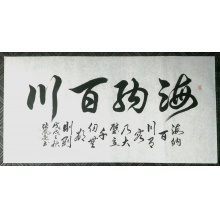 海纳百川
海纳
百
川有
容
乃大
壁立
千
仞無
欲
則剛